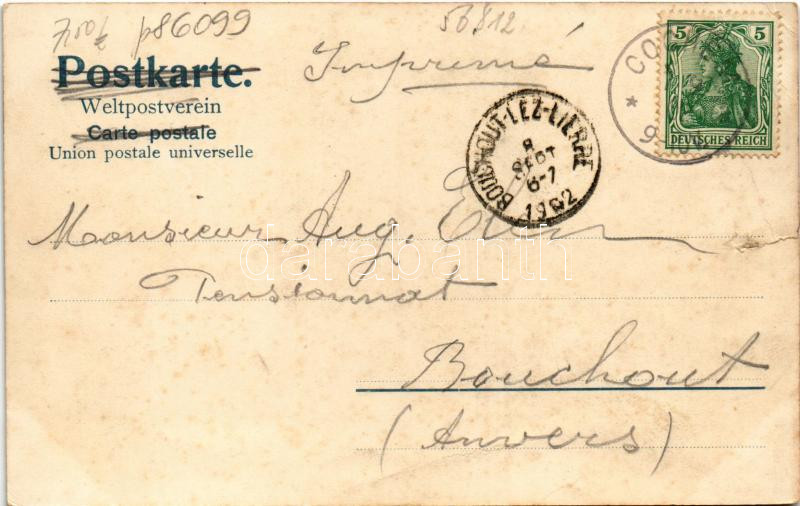 p86099
56812
Postkarte.
Weltpostverein
Carte postale
Union postale universelle
Imprimé
5 5
DEUTSCHES REICH
BOUCHOUT-LEZ-LIERRE
8
SEPT
6-7
1902
Monsieur Aug.
Pensionnat
Bouchout
(Anvers)
darabanth